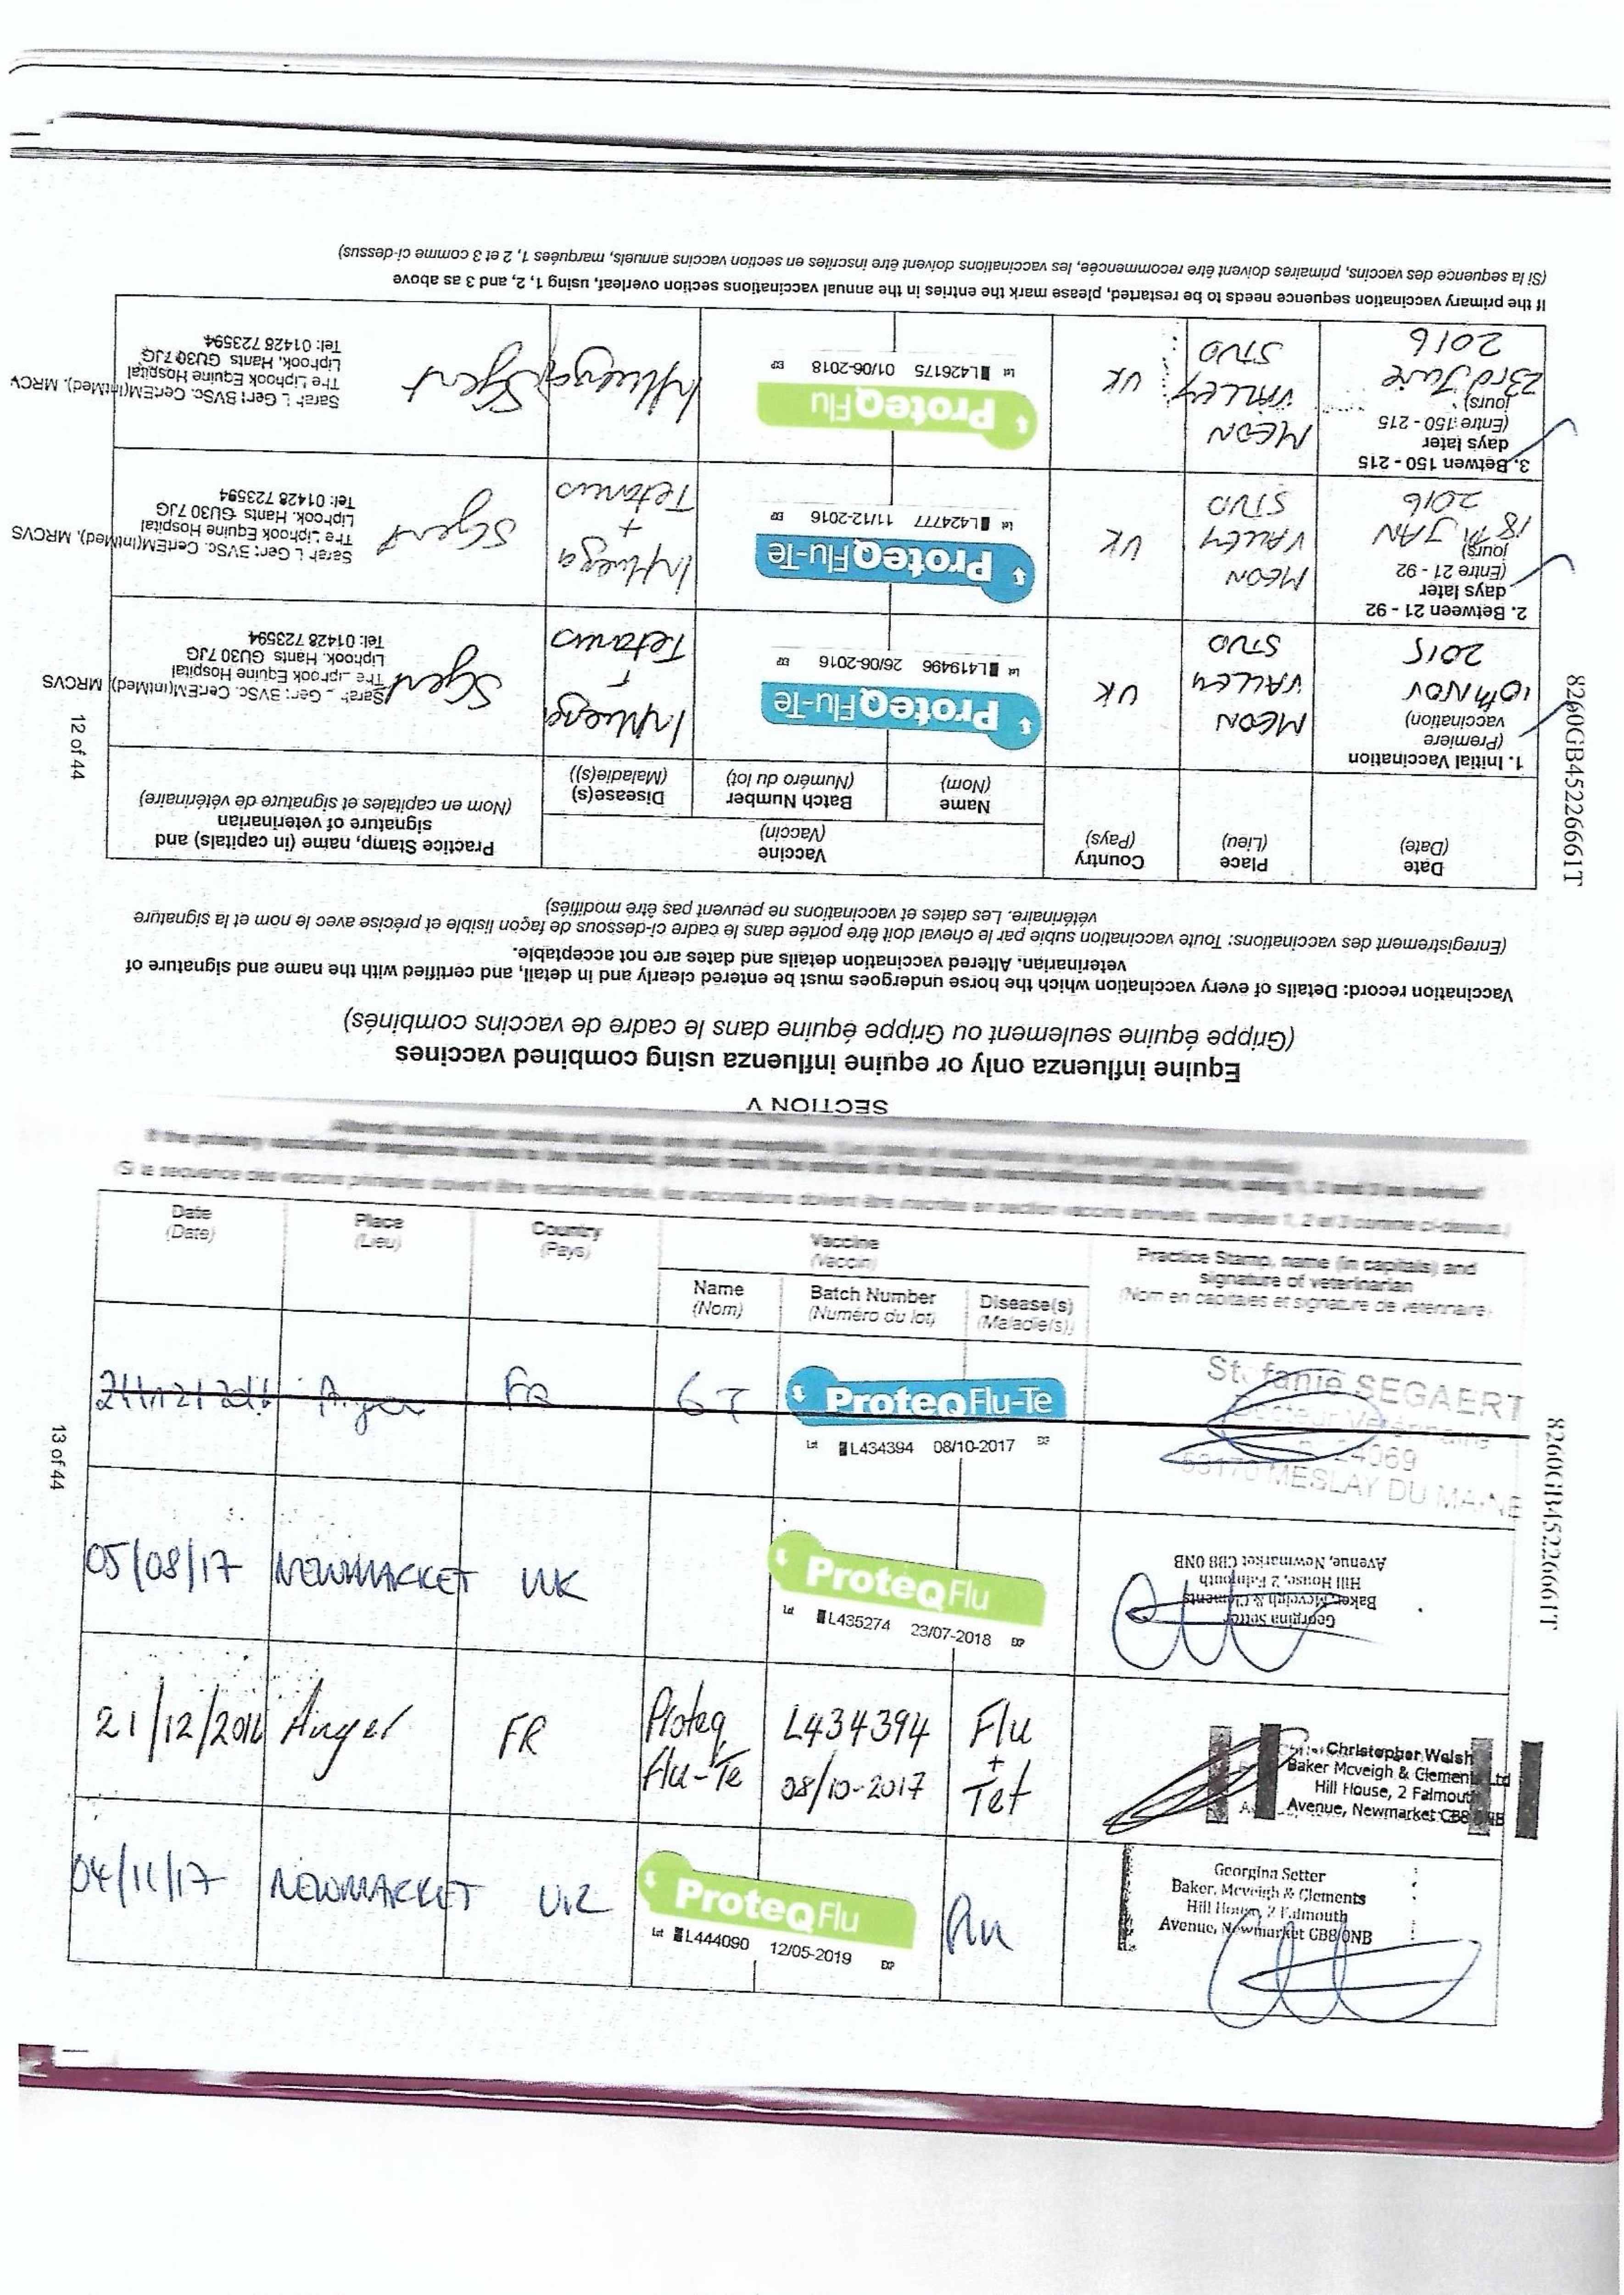 SECTION V
Equine influenza only or equine influenza using combined vaccines
(Grippe équine seulement ou Grippe équine dans le cadre de vaccins combinés)
Vaccination record: Details of every vaccination which the horse undergoes must be entered clearly and in detail, and certified with the name and signature of
veterinarian. Altered vaccination details and dates are not acceptable.
(Enregistrement des vaccinations: Toute vaccination subie par le cheval doit être portée dans le cadre ci-dessous de façon lisible et précise avec le nom et la signature
vétérinaire. Les dates et vaccinations ne peuvent pas être modifiés)
Date
(Date)
Place
(Lieu)
Country
(Pays)
Vaccine
(Vaccin)
Name
(Nom)
Batch Number
(Numéro du lot)
Disease(s)
(Maladie(s))
Practice Stamp, name (in capitals) and
signature of veterinarian
(Nom en capitales et signature de vétérinaire)
1. Initial Vaccination
(Premiere
vaccination)
10th NOV
2015
MEON
VALLEY
STUD
UK
ProteqFlu-Te
Lot L419496 26/06-2016 EXP
Influenza
+
Tetanus
The Liphook Equine Hospital
Liphook. Hants GU30 7JG
Tel: 01428 723594
2. Between 21 - 92
days later
(Entre 21 - 92
jours)
18th JAN
2016
MEON
VALLEY
STUD
UK
ProteqFlu-Te
Lot L424777 11/12-2016 EXP
Influenza
+
Tetanus
The Liphook Equine Hospital
Liphook. Hants GU30 7JG
Tel: 01428 723594
3. Betwen 150 - 215
days later
(Entre 150 - 215
jours)
23rd June
2016
MEON
VALLEY
STUD
UK
ProteqFlu
Lot L426175 01/06-2018 EXP
Influenza
The Liphook Equine Hospital
Liphook, Hants GU30 7JG
Tel: 01428 723594
If the primary vaccination sequence needs to be restarted, please mark the entries in the annual vaccinations section overleaf, using 1, 2, and 3 as above
(Si la sequence des vaccins, primaires doivent être recommencée, les vaccinations doivent être inscrites en section vaccins annuels, marquées 1, 2 et 3 comme ci-dessus)
12 of 44
8260GB45226661T
(Si la sequence des vaccins primaires doivent être recommencée, les vaccinations doivent être inscrites en section vaccins annuels, marquées 1, 2 et 3 comme ci-dessus.)
Date
(Date)
Place
(Lieu)
Country
(Pays)
Vaccine
(Vaccin)
Name
(Nom)
Batch Number
(Numéro du lot)
Disease(s)
(Maladie(s))
Practice Stamp, name (in capitals) and
signature of veterinarian
(Nom en capitales et signature de veterinaire)
FR
GT
ProteqFlu-Te
Lot L434394 08/10-2017 EXP
SEGAERT
53170 MESLAY DU MAINE
05/08/17 NEWMARKET UK
ProteqFlu
Lot L435274 23/07-2018 EXP
Georgina Setter
Baker, Mcveigh & Clements
Hill House, 2 Falmouth
Avenue, Newmarket CB8 0NB
21/12/2016 Anger FR
Proteq
Flu-Te
L434394
08/10-2017
Flu
+
Tet
Christopher Welsh
Baker Mcveigh & Clements Ltd
Hill House, 2 Falmouth
Avenue, Newmarket CB8 0NB
04/11/17 NEWMARKET UK
ProteqFlu
Lot L444090 12/05-2019 EXP
Flu
Georgina Setter
Baker, Mcveigh & Clements
Hill House, 2 Falmouth
Avenue, Newmarket CB8 0NB
13 of 44
8260GB45226661T